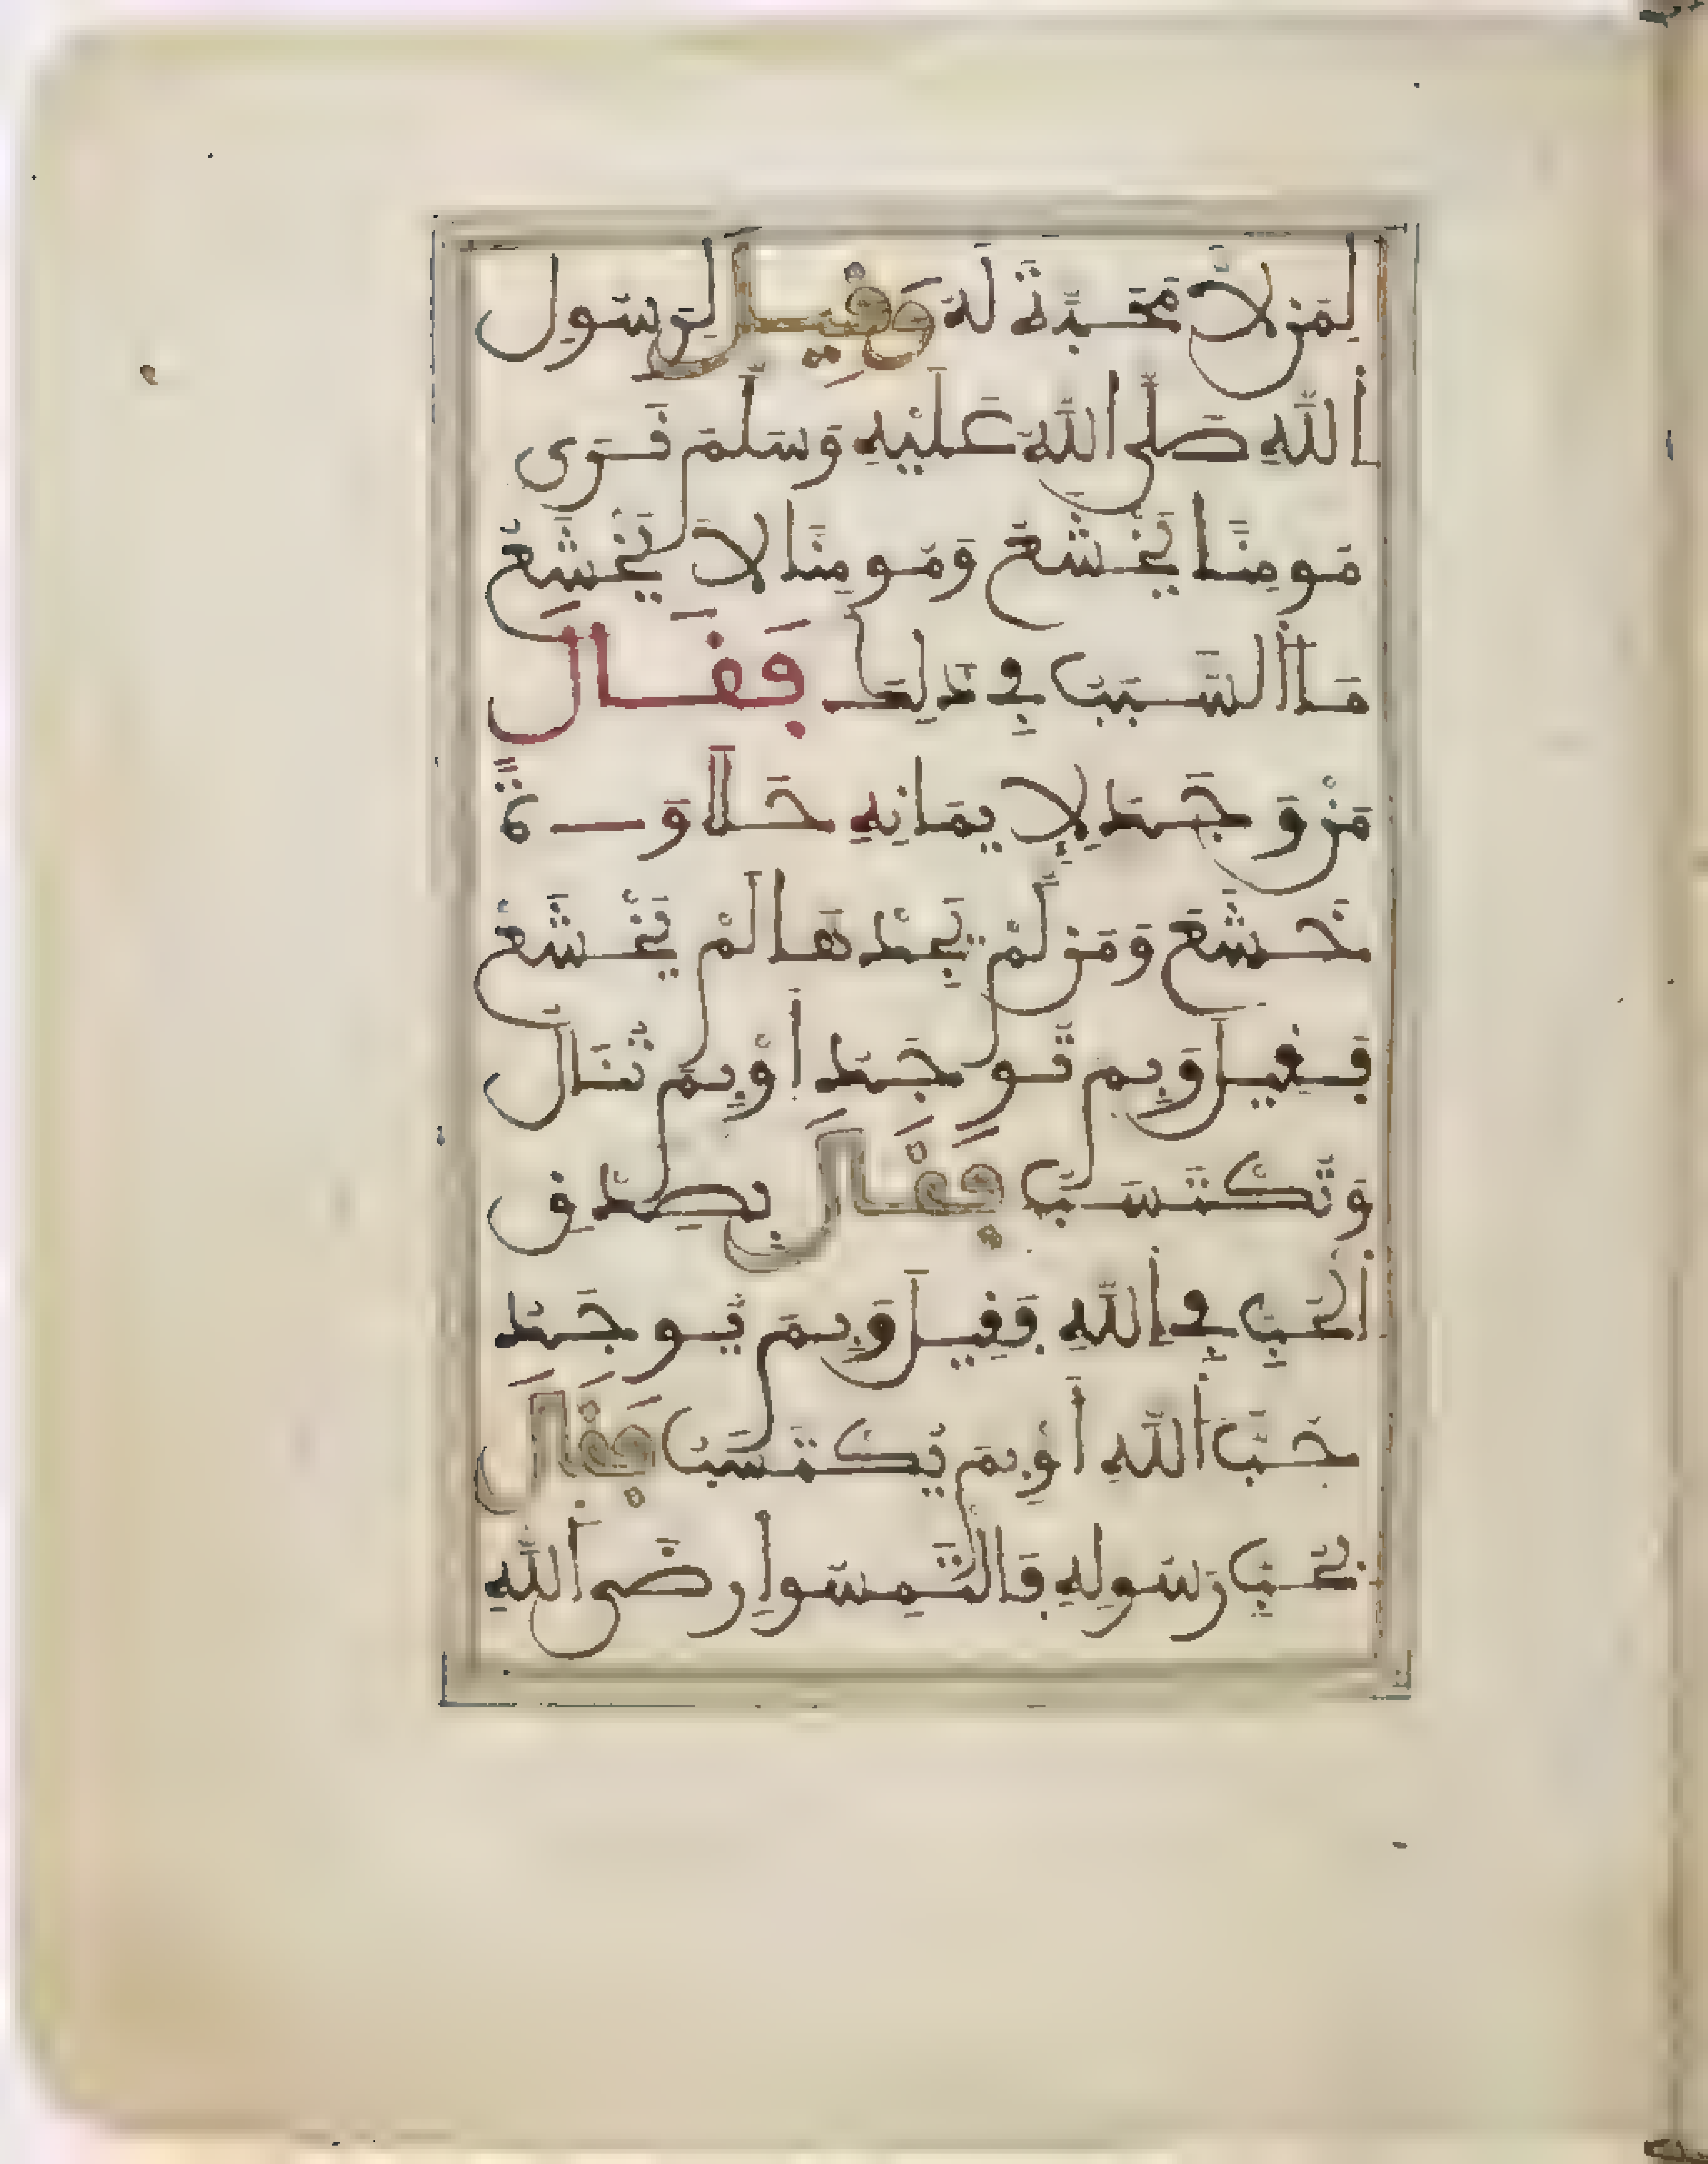 لِمَن لاَّ مَحَبَّةَ لَهُ وَقِيلَ لِرَسُولِ
اللَّهِ صَلَّى اللَّهُ عَلَيْهِ وَسَلَّمَ نَرَى
مُومِنًا يَخْشَعُ وَمُومِنًا لاَ يَخْشَعُ
مَا السَّبَبُ فِي ذَلِكَ فَقَالَ
مَنْ وَجَدَ لِإِيمَانِهِ حَلَاوَةً
خَشَعَ وَمَن لَّمْ يَجِدْهَا لَمْ يَخْشَعْ
فَقِيلَ وَبِمَ تُوجَدُ أَوْ بِمَ تُنَالُ
وَتُكْتَسَبُ فَقَالَ بِصِدْقِ
الْحُبِّ فِي اللَّهِ فَقِيلَ وَبِمَ يُوجَدُ
حُبُّ اللَّهِ أَوْ بِمَ يُكْتَسَبُ فَقَالَ
بِحُبِّ رَسُولِهِ فَالْتَمِسُوا رِضَى اللَّهِ